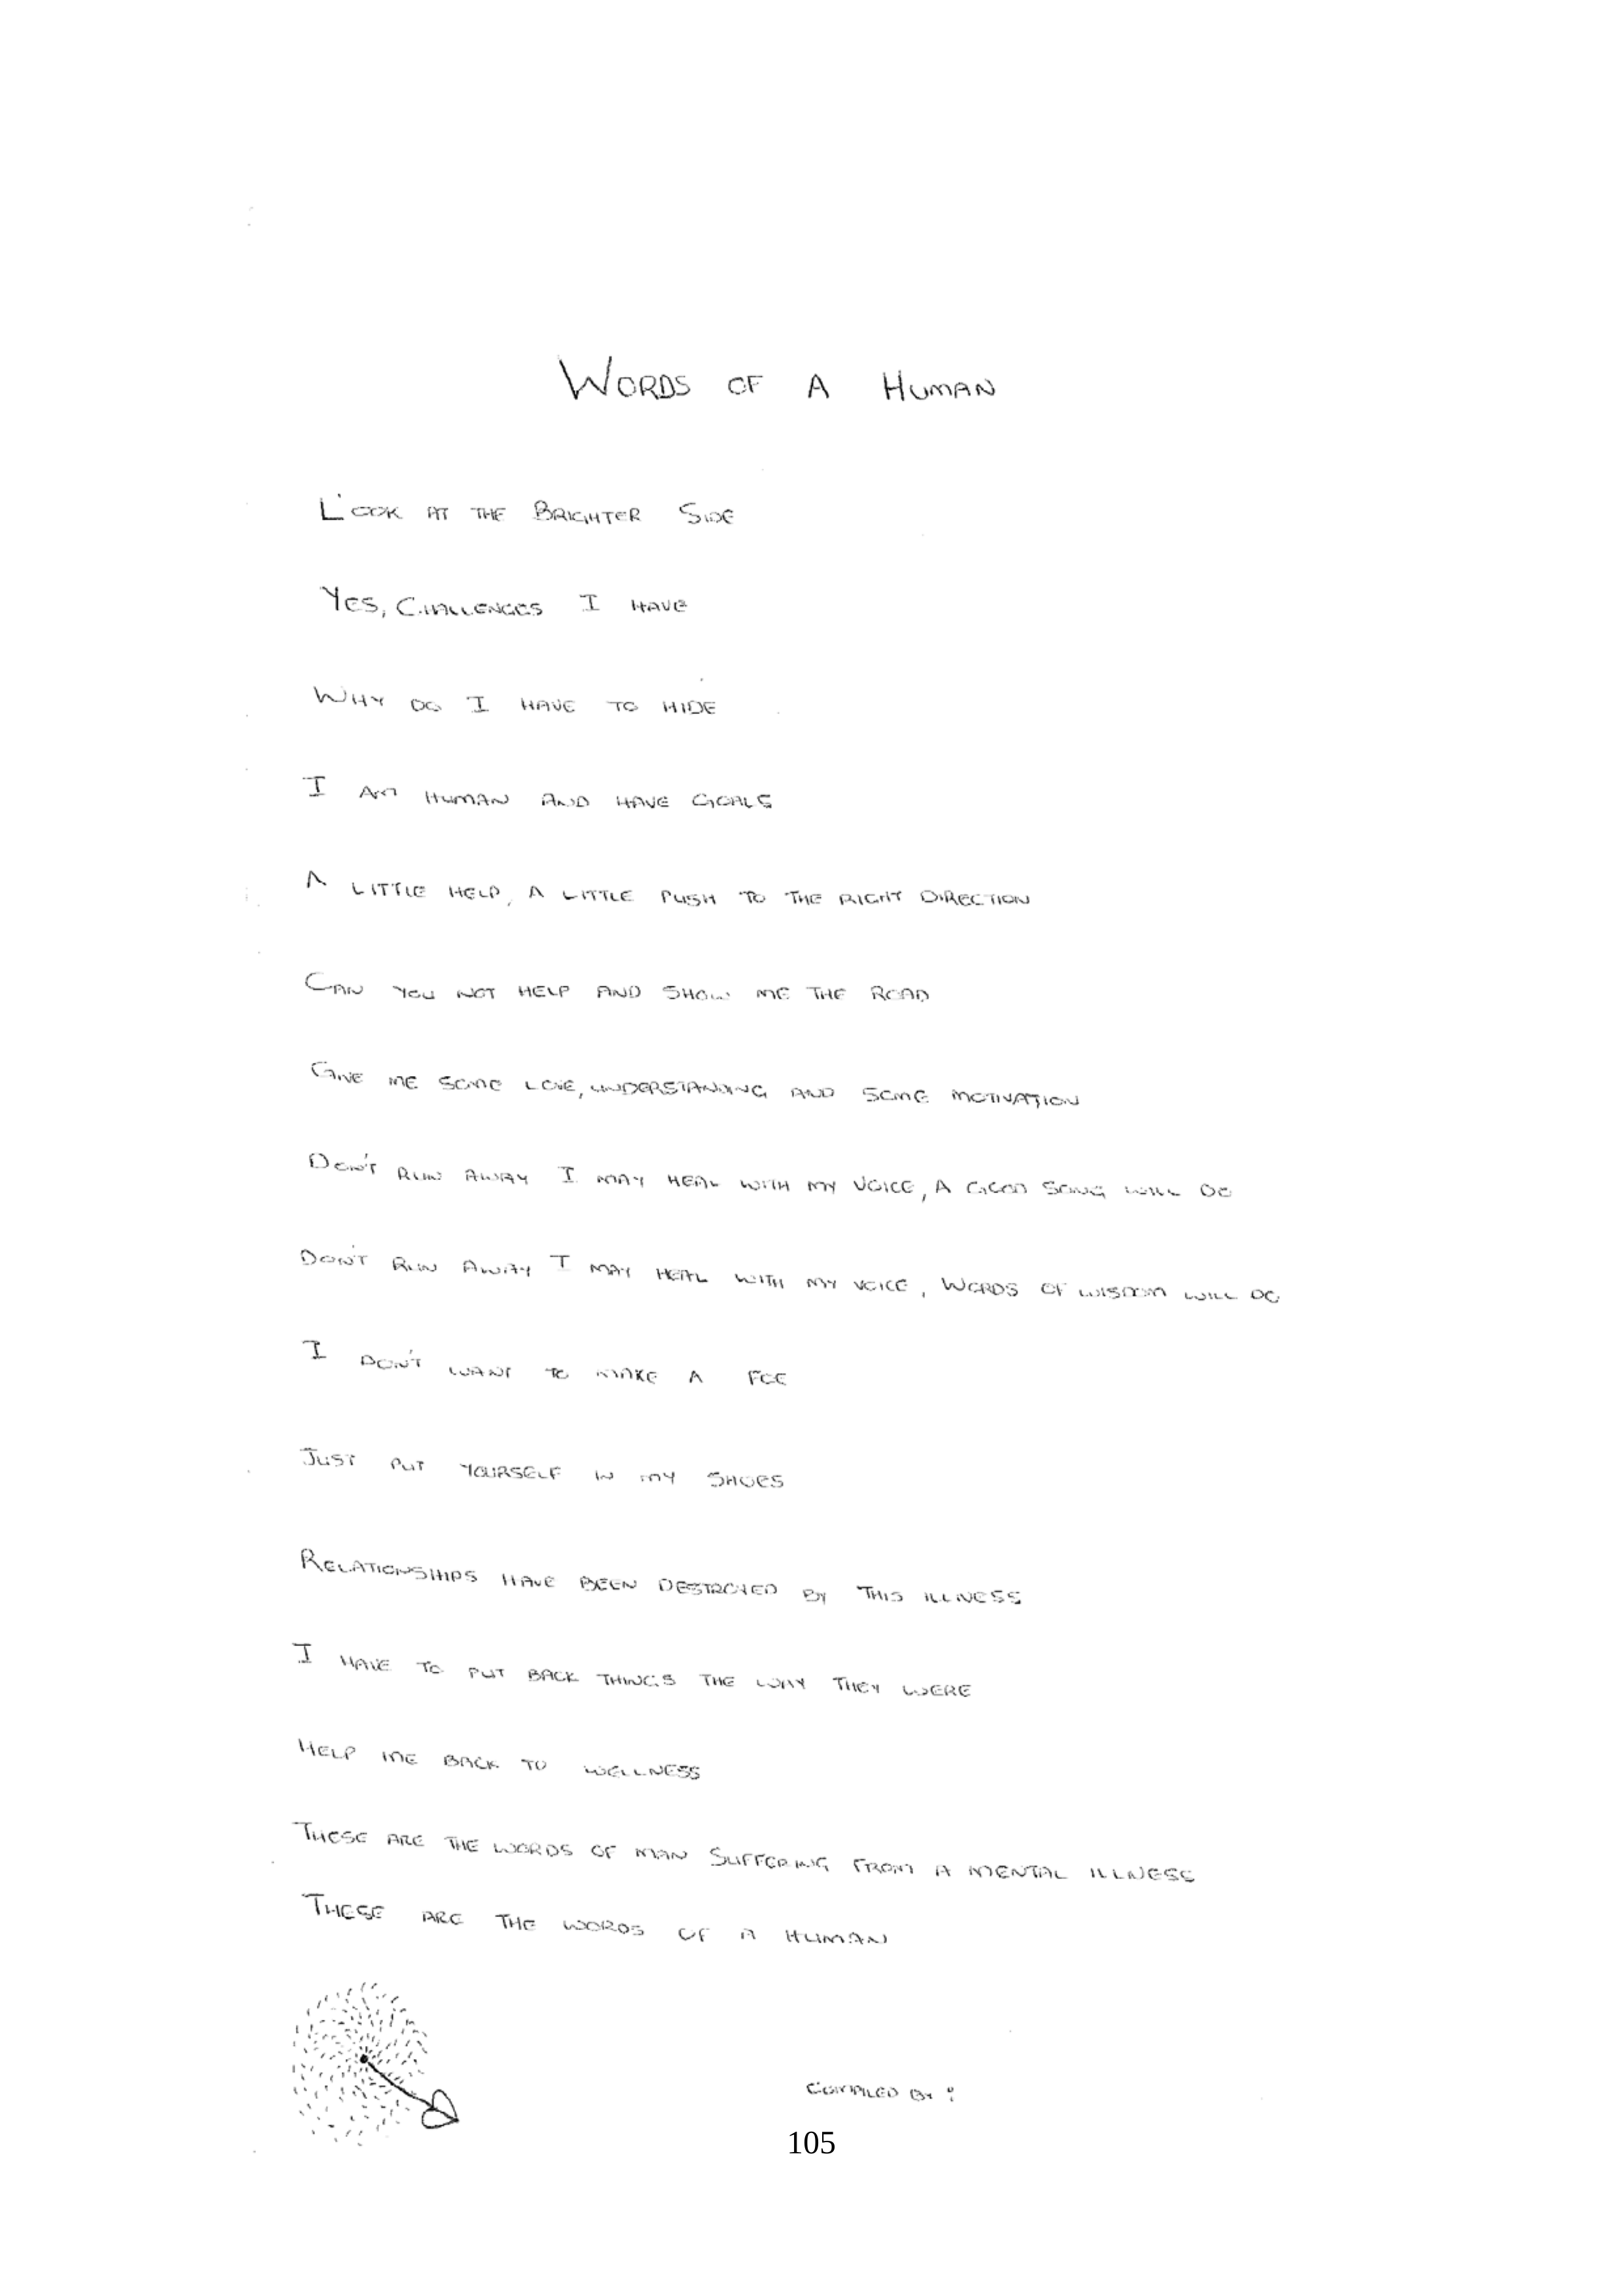 WORDS OF A HUMAN
LOOK AT THE BRIGHTER SIDE
YES, CHALLENGES I HAVE
WHY DO I HAVE TO HIDE
I AM HUMAN AND HAVE GOALS
A LITTLE HELP, A LITTLE PUSH TO THE RIGHT DIRECTION
CAN YOU NOT HELP AND SHOW ME THE ROAD
GIVE ME SOME LOVE, UNDERSTANDING AND SOME MOTIVATION
DON'T RUN AWAY I MAY HEAL WITH MY VOICE, A GOOD SONG WILL DO
DON'T RUN AWAY I MAY HEAL WITH MY VOICE, WORDS OF WISDOM WILL DO
I DON'T WANT TO MAKE A FOE
JUST PUT YOURSELF IN MY SHOES
RELATIONSHIPS HAVE BEEN DESTROYED BY THIS ILLNESS
I HAVE TO PUT BACK THINGS THE WAY THEY WERE
HELP ME BACK TO WELLNESS
THESE ARE THE WORDS OF MAN SUFFERING FROM A MENTAL ILLNESS
THESE ARE THE WORDS OF A HUMAN
COMPILED BY :
105